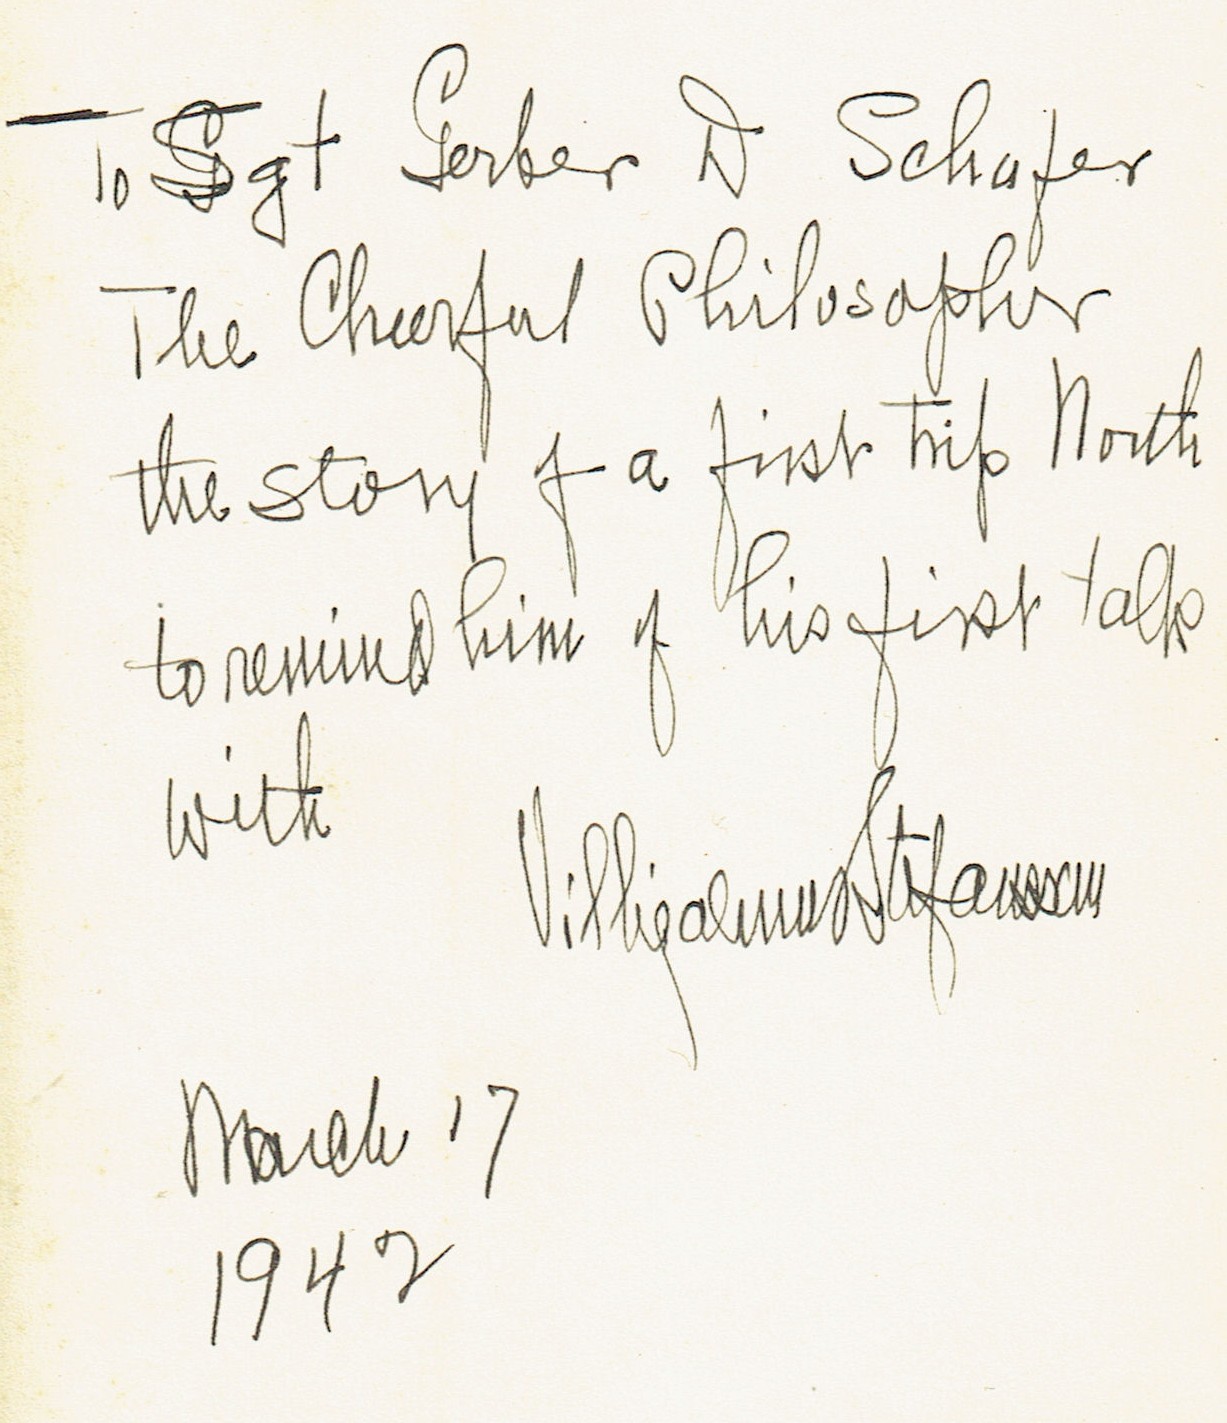 To Sgt Gerber D Schafer
The Cheerful Philosopher
the story of a first trip North
to remind him of his first talk
with
Vilhjalmur Stefansson
March 17
1942